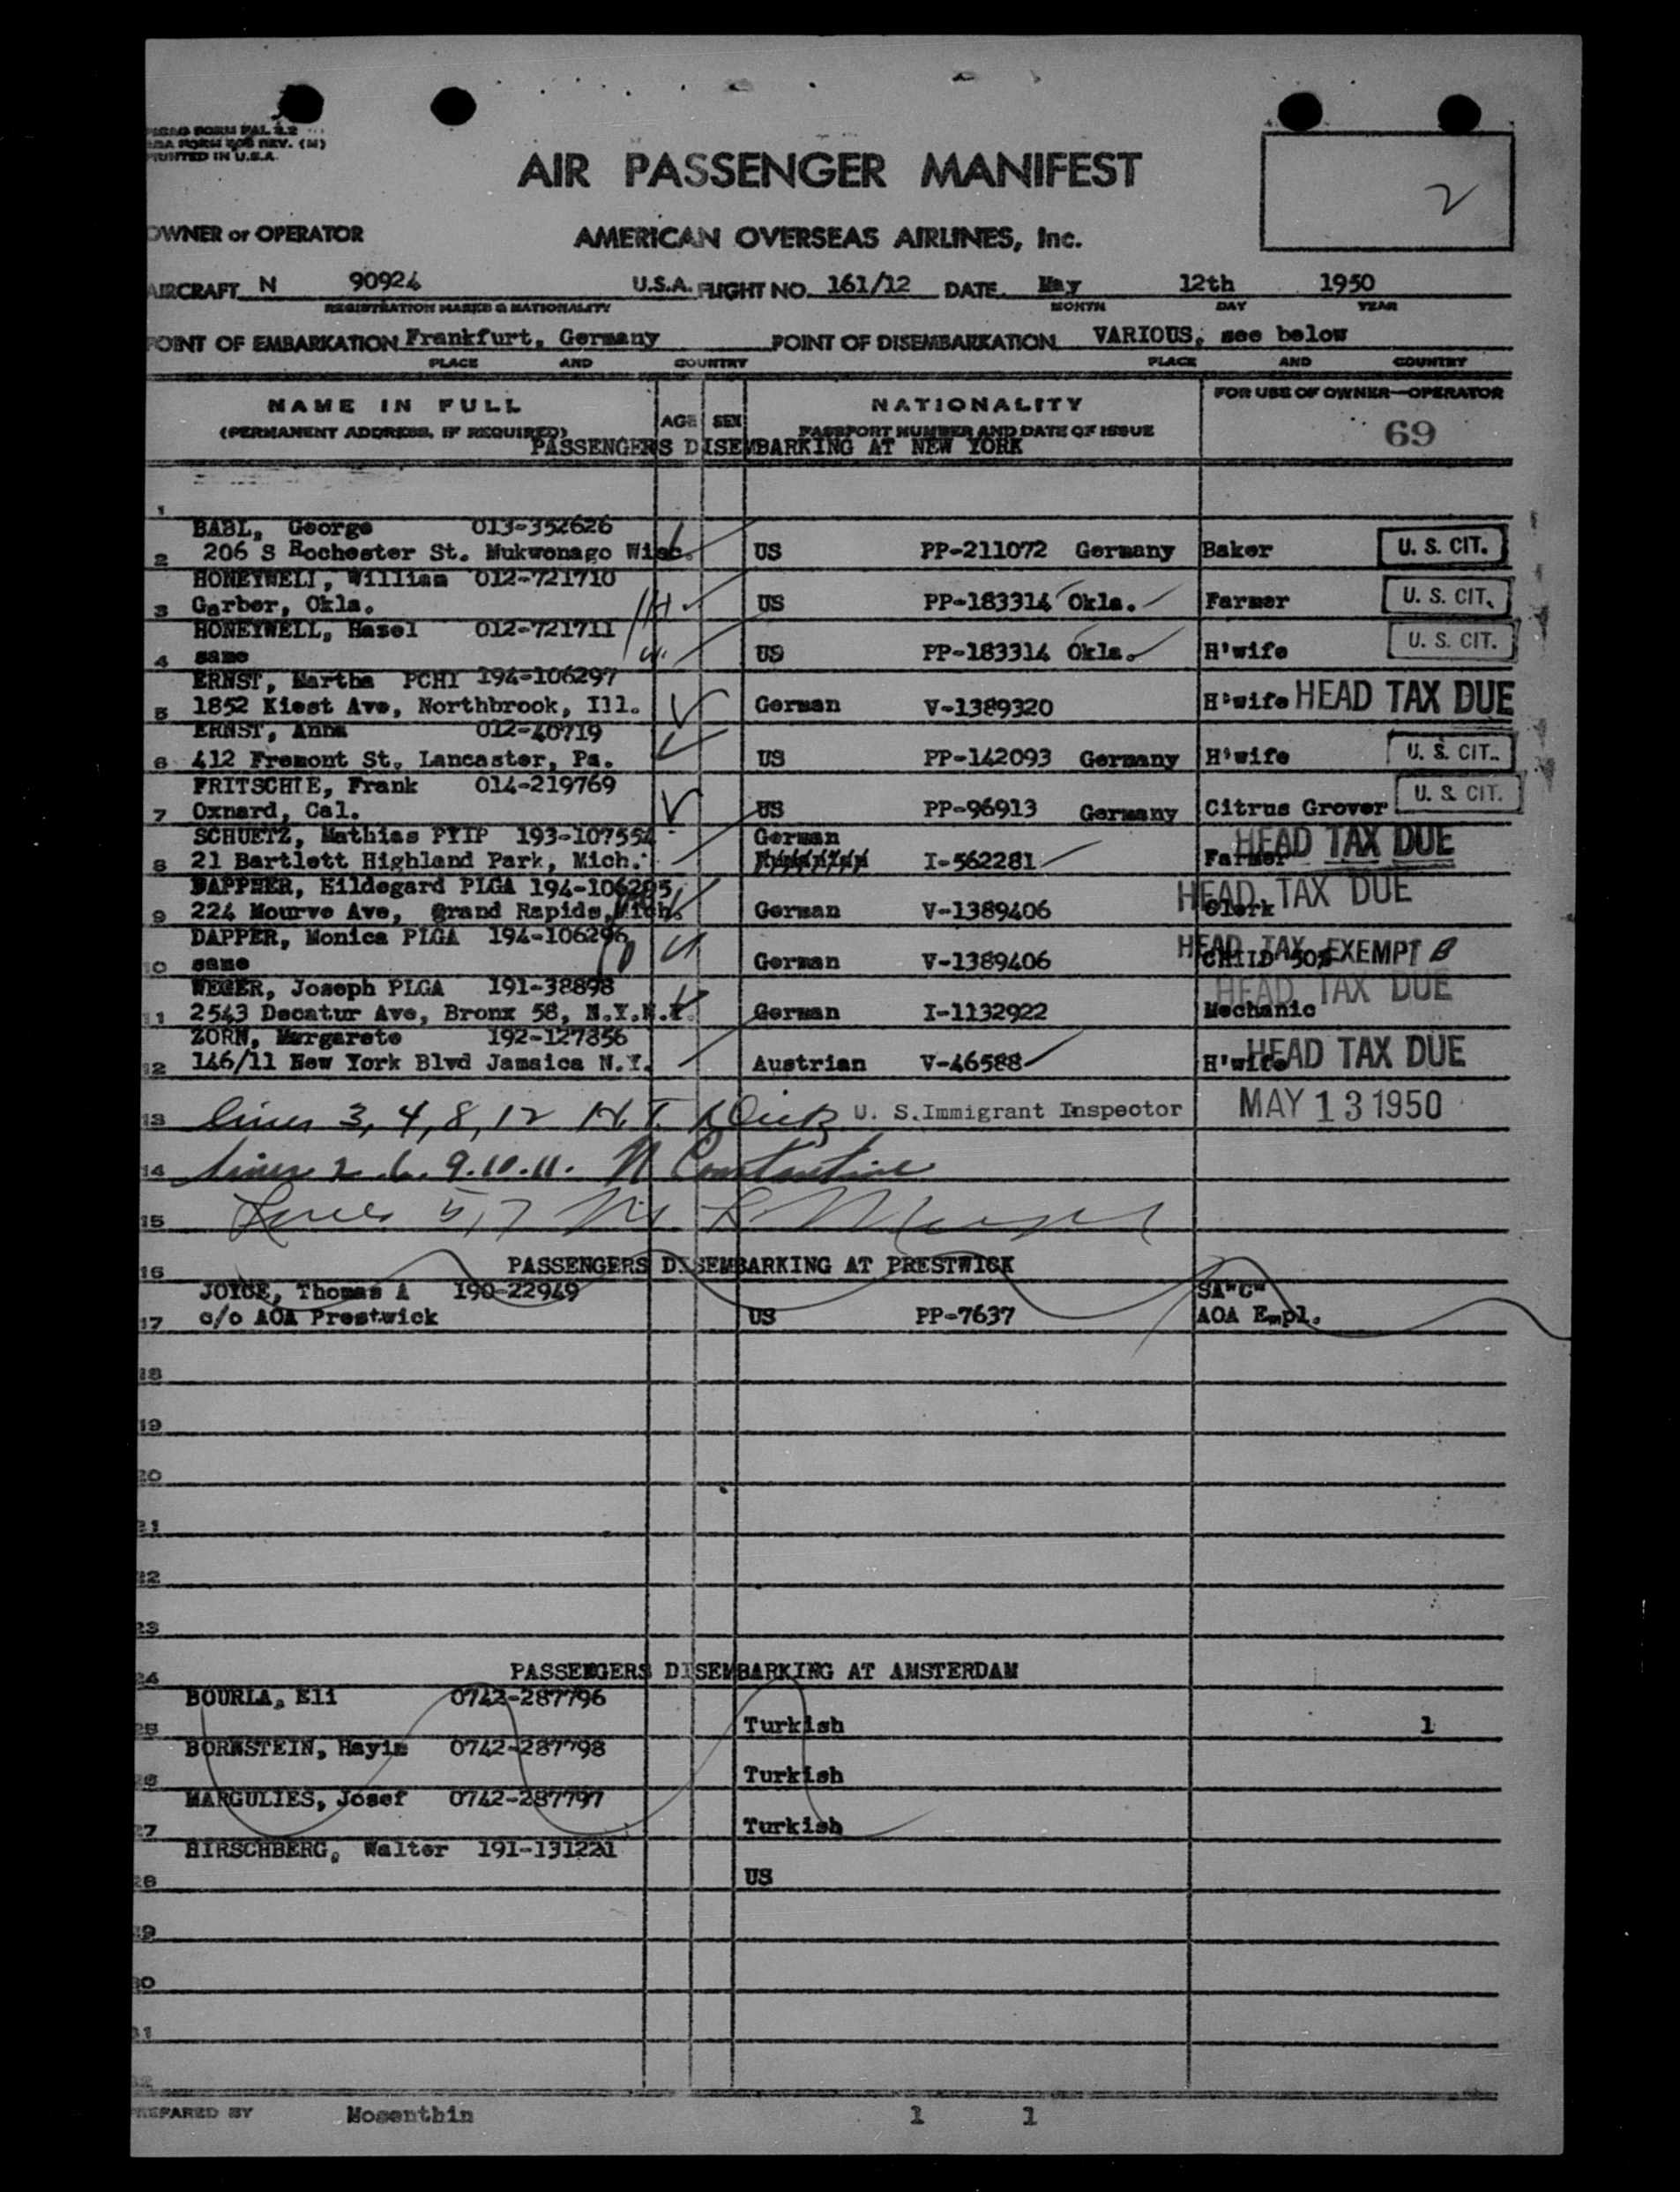 ICAO FORM PAL 2.2
AOA FORM 508 REV. (M)
PRINTED IN U.S.A.
2
AIR PASSENGER MANIFEST
OWNER or OPERATOR AMERICAN OVERSEAS AIRLINES, Inc.
AIRCRAFT N 90924 U.S.A. FLIGHT NO. 161/12 DATE May 12th 1950
REGISTRATION MARKS & NATIONALITY MONTH DAY YEAR
POINT OF EMBARKATION Frankfurt, Germany POINT OF DISEMBARKATION VARIOUS, see below
PLACE AND COUNTRY PLACE AND COUNTRY
NAME IN FULL AGE SEX NATIONALITY FOR USE OF OWNER—OPERATOR
(PERMANENT ADDRESS, IF REQUIRED) PASSPORT NUMBER AND DATE OF ISSUE 69
PASSENGERS DISEMBARKING AT NEW YORK
1
BABL, George 013-352626
2 206 S Rochester St. Mukwonago Wisc. US PP-211072 Germany Baker U. S. CIT.
HONEYWELL, William 012-721710
3 Garber, Okla. H US PP-183314 Okla. Farmer U. S. CIT.
HONEYWELL, Hazel 012-721711
4 same W. US PP-183314 Okla. H'wife U. S. CIT.
ERNST, Martha PCHI 194-106297
5 1852 Kiest Ave, Northbrook, Ill. German V-1389320 H'wife HEAD TAX DUE
ERNST, Anna 012-40719
6 412 Fremont St. Lancaster, Pa. US PP-142093 Germany H'wife U. S. CIT.
FRITSCHIE, Frank 014-219769
7 Oxnard, Cal. US PP-96913 Germany Citrus Grover U. S. CIT.
SCHUETZ, Mathias PTIP 193-107554 German
8 21 Bartlett Highland Park, Mich. I-562281 Farmer HEAD TAX DUE
DAPPER, Hildegard PLGA 194-106295
9 224 Mourve Ave, Grand Rapids, Mich. German V-1389406 Clerk HEAD TAX DUE
DAPPER, Monica PLGA 194-106296
10 same German V-1389406 CHILD 50% HEAD TAX EXEMPT B
WEGER, Joseph PLGA 191-38898
11 2543 Decatur Ave, Bronx 58, N.Y.N.Y. German I-1132922 Mechanic HEAD TAX DUE
ZORN, Margarete 192-127856
12 146/11 New York Blvd Jamaica N.Y. Austrian V-46588 H'wife HEAD TAX DUE
13 lines 3, 4, 8, 12 H.T. U. S. Immigrant Inspector MAY 13 1950
14 Lines 2. 6. 9. 10. 11. N Constantine
15 Lines 5, 7
16 PASSENGERS DISEMBARKING AT PRESTWICK
JOYCE, Thomas A 190-22949 SA"C"
17 c/o AOA Prestwick US PP-7637 AOA Empl.
18
19
20
21
22
23
24 PASSENGERS DISEMBARKING AT AMSTERDAM
BOURLA, Eli 0742-287796
25 Turkish 1
BORNSTEIN, Hayim 0742-287798
26 Turkish
MARGULIES, Josef 0742-287797
27 Turkish
HIRSCHBERG, Walter 191-131221
28 US
29
30
31
32
PREPARED BY Mosenthin 1 1